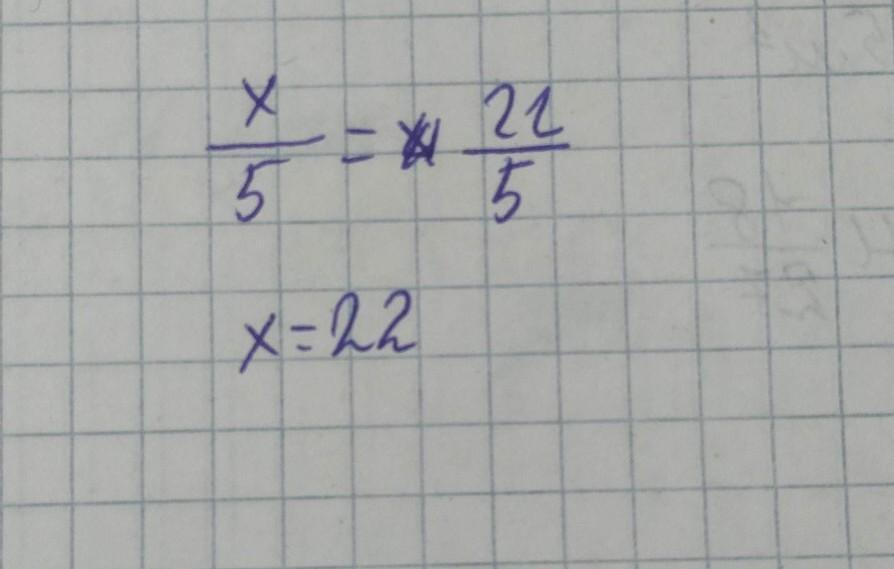 x/5 = 22/5
x=22